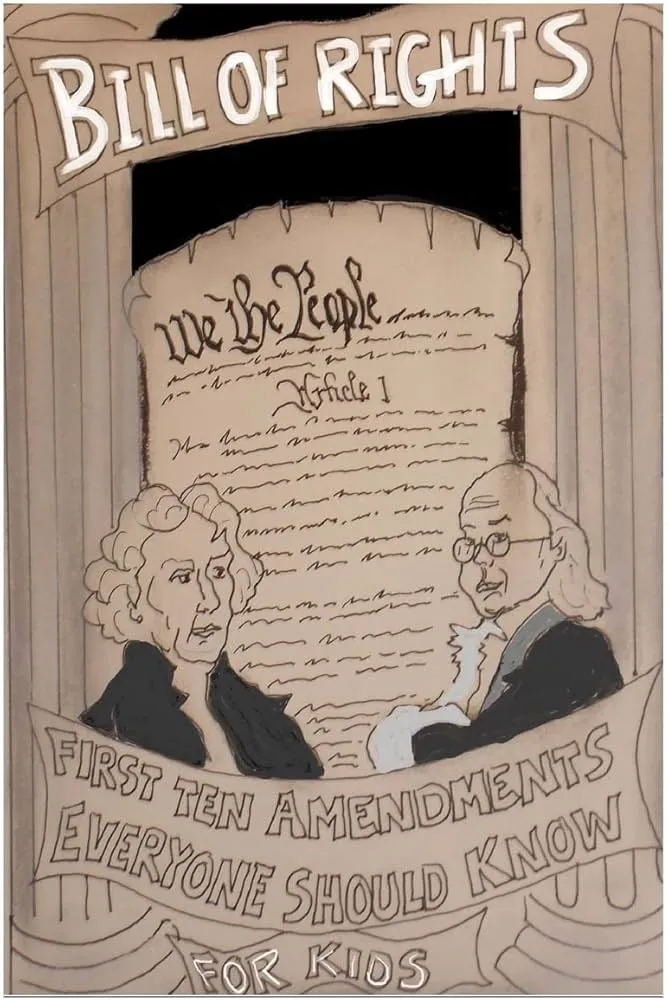 BILL OF RIGHTS
We the People
Article 1
FIRST TEN AMENDMENTS
EVERYONE SHOULD KNOW
FOR KIDS